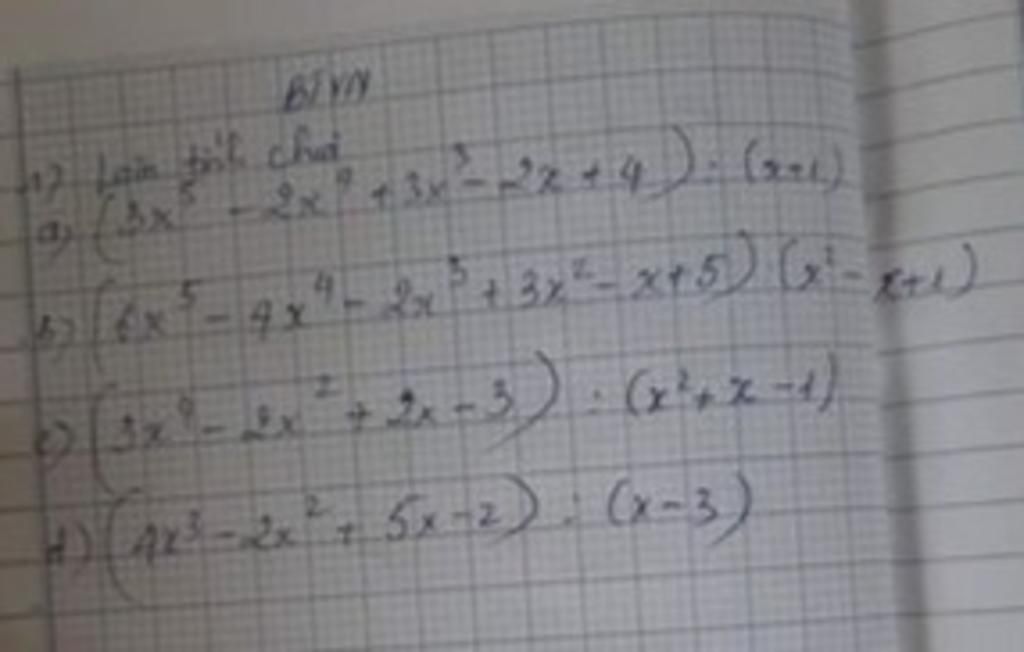 BTVN
1) Làm tính chia
a) (3x⁵ - 2x⁴ + 3x³ - 2x + 4) : (x+1)
b) (6x⁵ - 4x⁴ - 2x³ + 3x² - x + 5) : (x² - x + 1)
c) (3x⁴ - 2x² + 2x - 3) : (x² + x - 1)
d) (4x³ - 2x² + 5x - 2) : (x - 3)